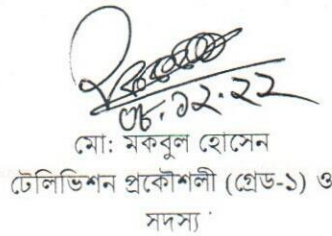 ০৮.১২.২২
মো: মকবুল হোসেন
টেলিভিশন প্রকৌশলী (গ্রেড-১) ও
সদস্য